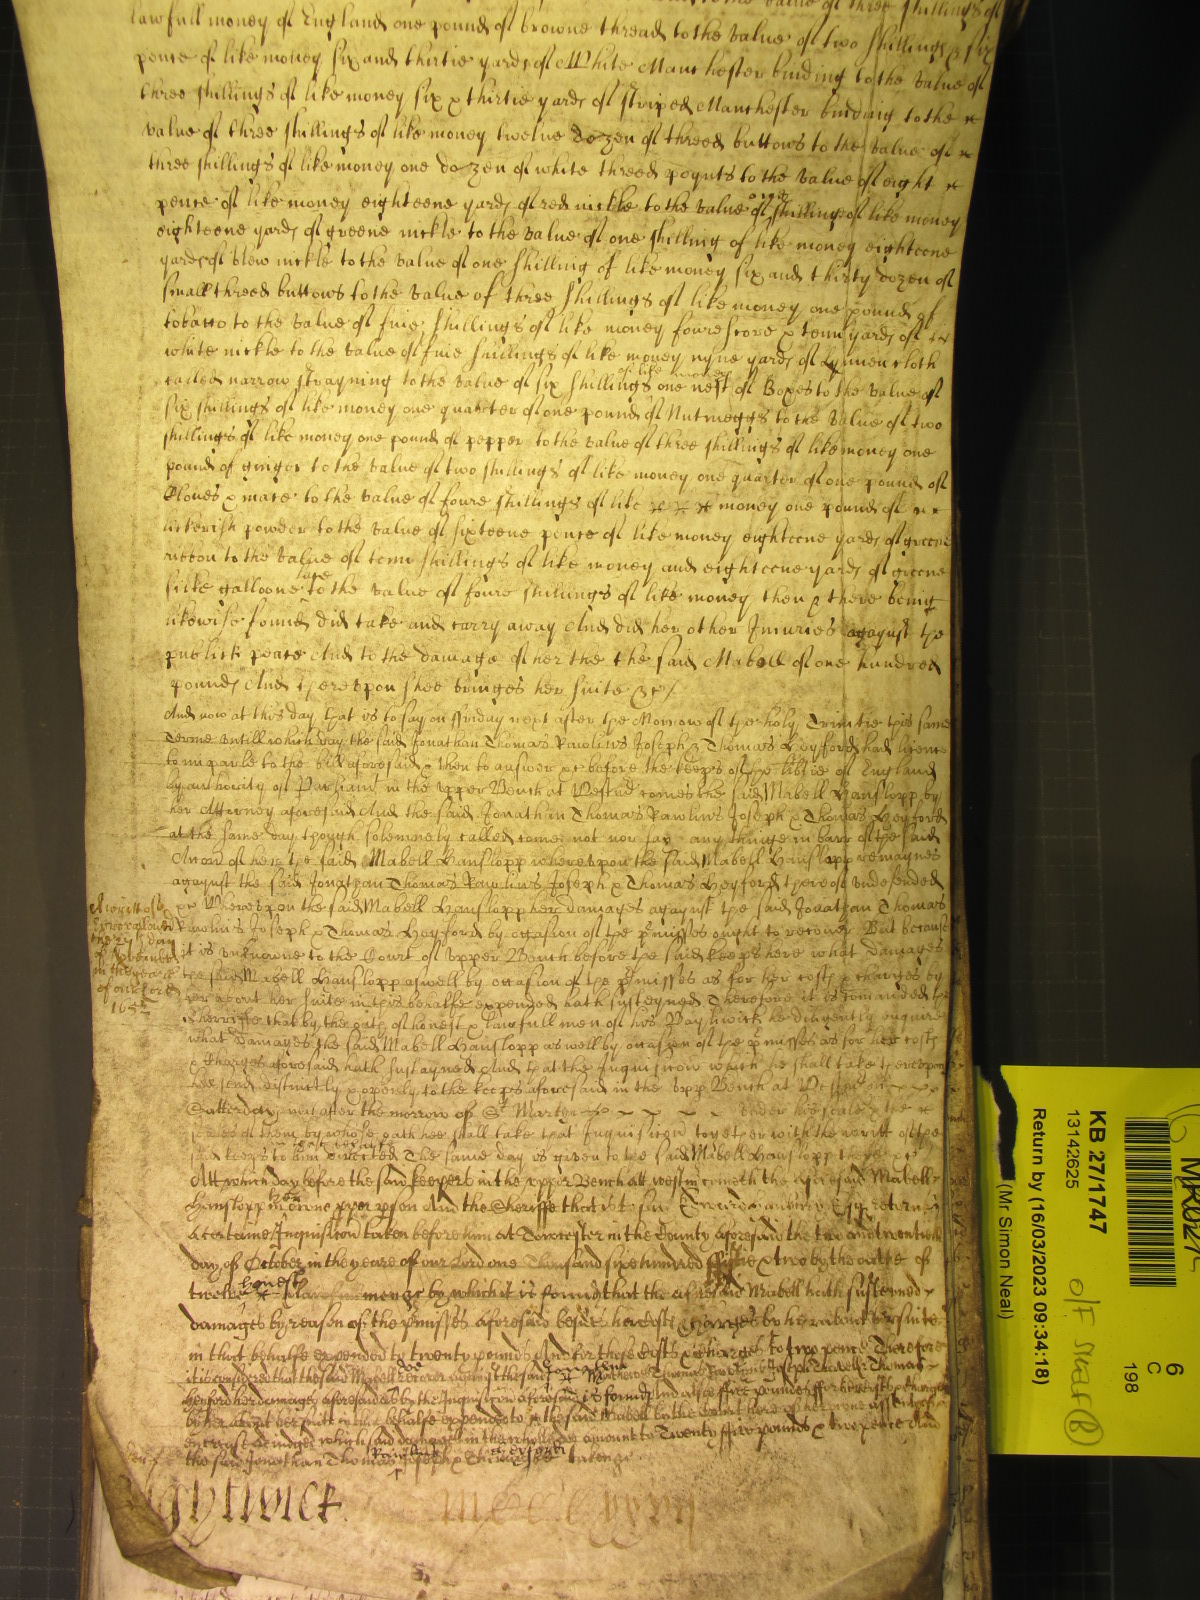 to the value of three shillings of
lawfull money of England one pound of browne thread to the value of two shillings & six
pence of like money six and thirtie yards of White Manchester binding to the value of
three shillings of like money six & thirtie yards of striped Manchester binding to the
value of three shillings of like money twelue dozen of threed buttons to the value of
three shillings of like money one dozen of white threed poynts to the value of eight
pence of like money eighteene yards of red nickle to the value of one shilling of like money
eighteene yards of greene nickle to the value of one shilling of like money eighteene
yards of blew nickle to the value of one shilling of like money six and thirty dozen of
small threed buttons to the value of three shillings of like money one pound of
tobacco to the value of fiue shillings of like money fourescore & tenn yards of
white nickle to the value of fiue shillings of like money nyne yards of Lynnen cloth
called narrow strayning to the value of six shillings of like money one nest of Boxes to the value of
six shillings of like money one quarter of one pound of Nutmeggs to the value of two
shillings of like money one pound of pepper to the value of three shillings of like money one
pound of ginger to the value of two shillings of like money one quarter of one pound of
Cloues & mace to the value of foure shillings of like money one pound of
lickerish powder to the value of sixteene pence of like money eighteene yards of greene
ribbon to the value of tenn shillings of like money and eighteene yards of greene
silke galloone lace to the value of foure shillings of like money then & there being
likewise found did take and carry away And did her other Iniuries against the
publick peace And to the damage of her the the said Mabell of one hundred
pounds And therevpon shee bringes her suite &c /
And now at this day that is to say on ffriday next after the Morrow of the holy Trinitie this same
Terme vntill which day the said Jonathan Thomas Rawlins Joseph & Thomas Heyford had licence
to imparle to the bill aforesaid & then to answer &c before the keeps of the lib'tie of England
by authority of Parliamt in the vpper Bench at Westm' comes the said Mabell Hanslopp by
her Attorney aforesaid And the said Jonathan Thomas Rawlins Joseph & Thomas Heyford
at the same day though solemnely called come not nor say any thinge in barr of the said
Accon of her the said Mabell Hanslopp wherevpon the said Mabell Hanslopp remaynes
against the said Jonathan Thomas Rawlins Joseph & Thomas Heyford thereof vndefended
&c Wherevpon the said Mabell Hanslopp her damages against the said Jonathan Thomas
Rawlins Joseph & Thomas Heyford by occasion of the p'misses ought to recouer But because
it is vnknowne to the Court of vpper Bench before the said keeps here what damages
the said Mabell Hanslopp aswell by occasion of the p'misses as for her costs & charges by
her about her suite in this behalfe expended hath susteyned Therefore it is comanded the
Sherriffe that by the oath of honest & lawfull men of his Baylywick he diligently enquire
what damages the said Mabell Hanslopp as well by occasion of the p'misses as for her costs
& Charges aforesaid hath sustayned And that the Inquisicon which he shall take therevpon
hee send distinctly & openly to the keeps aforesaid in the vpp Bench at Westm' on
Satterday next after the morrow of St Martyn vnder his seale & the
seales of them by whose oath hee shall take that Inquisicion together with the writt of the
said keeps to him directed The same day is giuen to the said Mabell Hanslopp there &c
Att which day before the said keepers in the vpper Bench att westm' cometh the aforesaid Mabell
Hanslopp in her owne p'per p'son And the Sheriffe that is to say Edward Esqr returned
a certaine Inquisicon taken before him at Towcester in the County aforesaid the two and twentieth
day of October in the yeare of our Lord one Thousand six hundred fiftie & two by the oathe of
twelue honest & lawfull men &c by which it is found that the aforesaid Mabell hath susteyned
damages by reason of the p'misses aforesaid besides her costs & charges by her about her suite
in that behalfe expended to twenty pounds And for those costs & charges to two pence Therefore
it is considered that the said Mabell doe recouer against the said Jonathan Thomas Rawlins Joseph & Thomas
Heyford her damages aforesaid by the Inquisicon aforesaid in forme And also fiue pounds for her costs & charges
by her about her suite in this behalfe expended to the said Mabell by the Court here of her owne assent of
encrease adiudged which said damages in the whole doe amount to Twenty fiue pounds & two pence And
the said Jonathan Thomas Rawlins Joseph & Thomas be taken &c
A writt of
Error allowed
the day
of Nouember
in the yeare
of our Lord
165
KB 27/1747
13142625
Return by (16/03/2023 09:34:18)
(Mr Simon Neal)
6
C
198
O/F